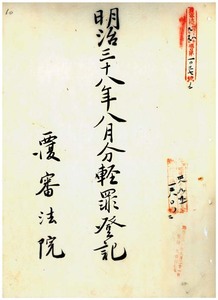 明治三十八年八月分輕罪登記
覆審法院